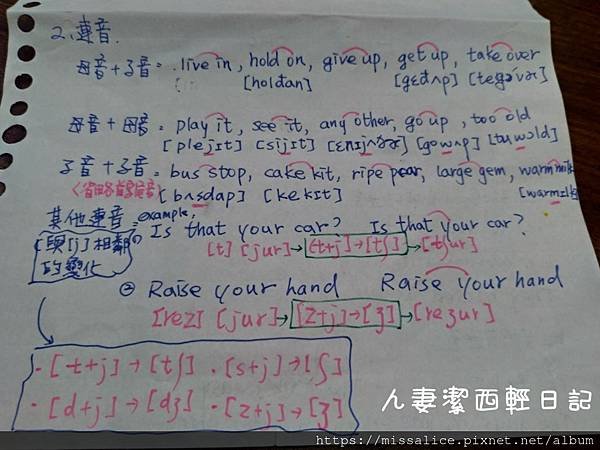 2. 連音.
母音+子音=. live in, hold on, give up, get up, take over
[holdan] [gɛdʌp] [tegəvɚ]
母音+母音= play it, see it, any other, go up, too old
[plejɪt] [sijɪt] [ɛnɪjʌðɚ] [gowʌp] [tuwold]
子音+子音= bus stop, cake kit, ripe pear, large gem, warm milk
[bʌsdap] [kekɪt] [warmɪlk]
其他連音= example,
[與[j]相鄰的變化
① Is that your car? Is that your car?
[t] [jur]→[t+j]→[tʃ]→[tʃur]
② Raise your hand Raise your hand
[rez] [jur]→[z+j]→[ʒ]→[reʒur]
·[t+j]→[tʃ] ·[s+j]→[ʃ]
·[d+j]→[dʒ] ·[z+j]→[ʒ]
人妻潔西輕日記
https://missalice.pixnet.net/album